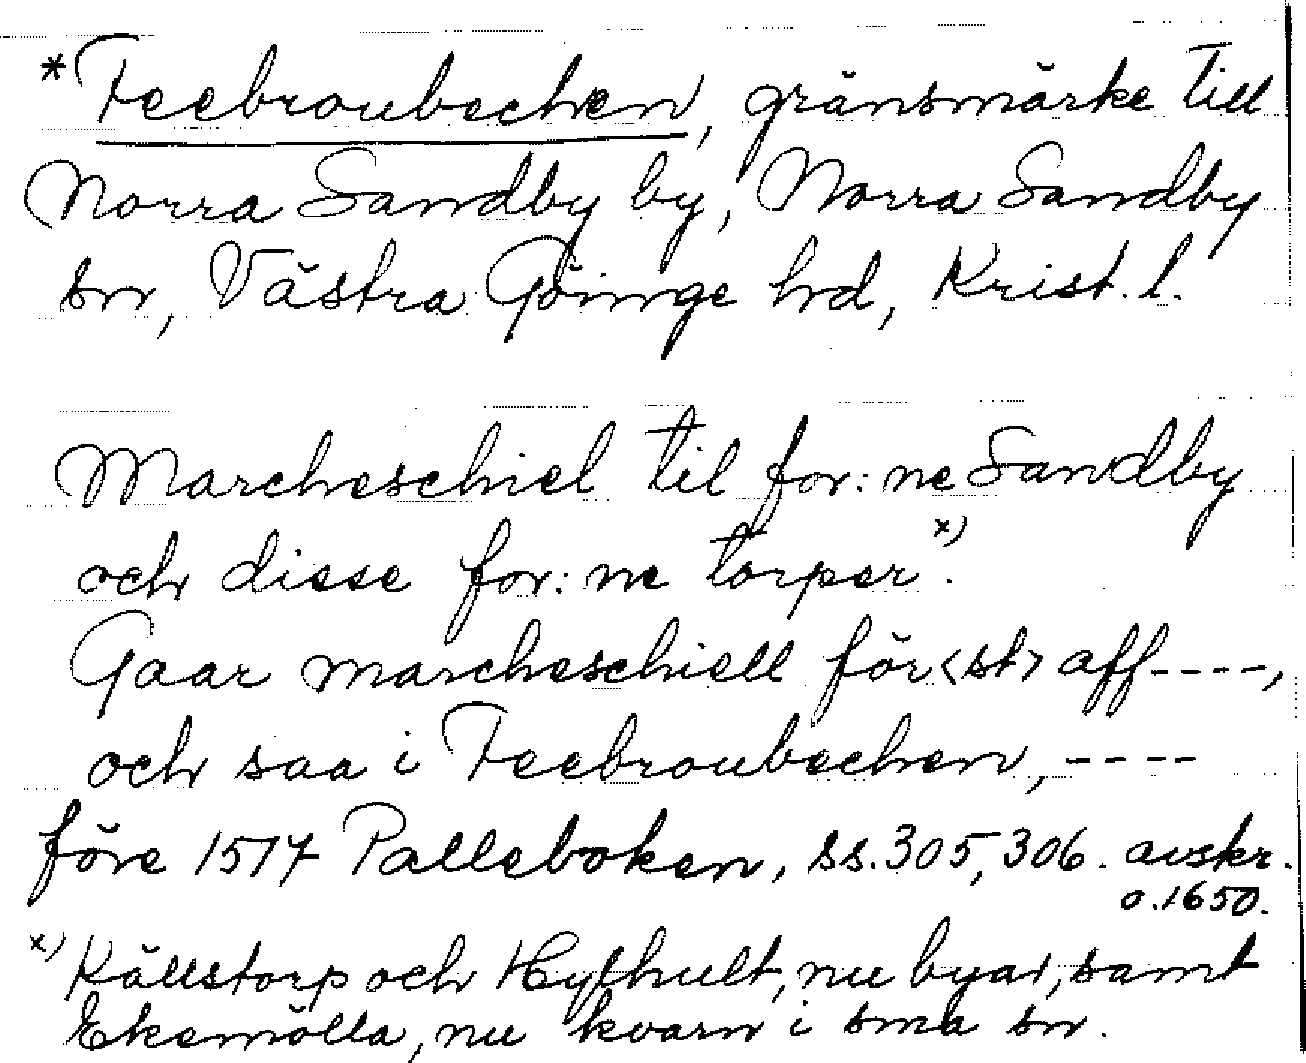 *Feebroubechen, gränsmärke till
Norra Sandby by, Norra Sandby
sn, Västra Göinge hd, Krist. l.
Marcheschiel til for: ne Sandby
och disse for: ne torper x).
Gaar marcheschiell för<st> aff----,
och saa i Feebroubechen, ----
före 1517 Palleboken, ss. 305, 306. avskr.
o. 1650.
x) Källstorp och Hylhult, nu byar, samt
Ekemölla, nu kvarn i sma sn.